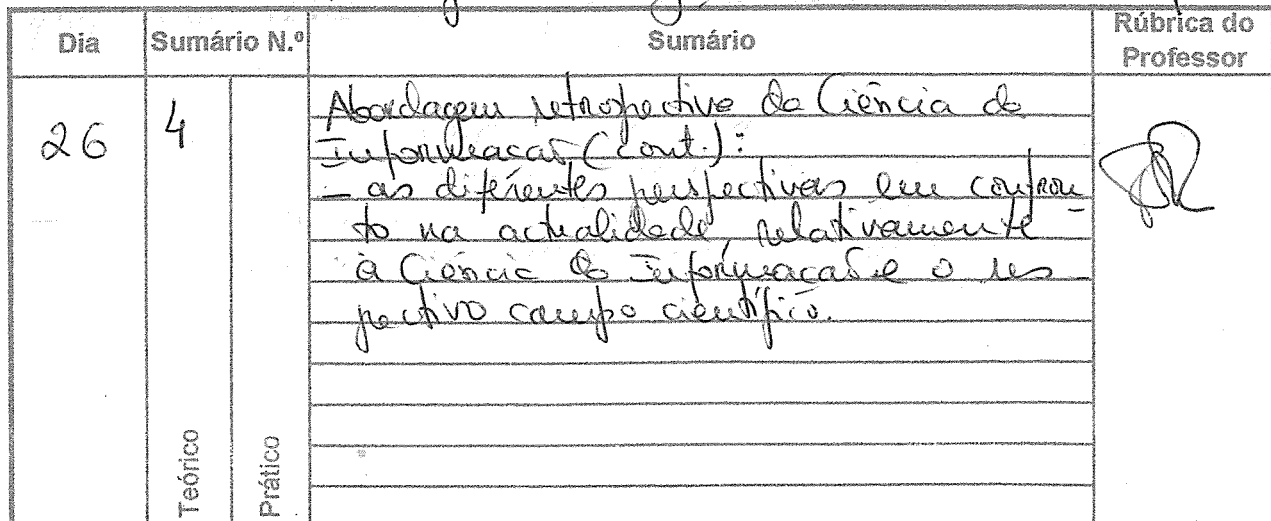 Dia
Sumário N.º
Sumário
Rúbrica do
Professor
26
4
Abordagem retrospectiva da Ciência da
Informação (cont.):
- as diferentes perspectivas em confron-
to na actualidade, relativamente
à Ciência da Informação e o res-
pectivo campo científico.
Teórico
Prático